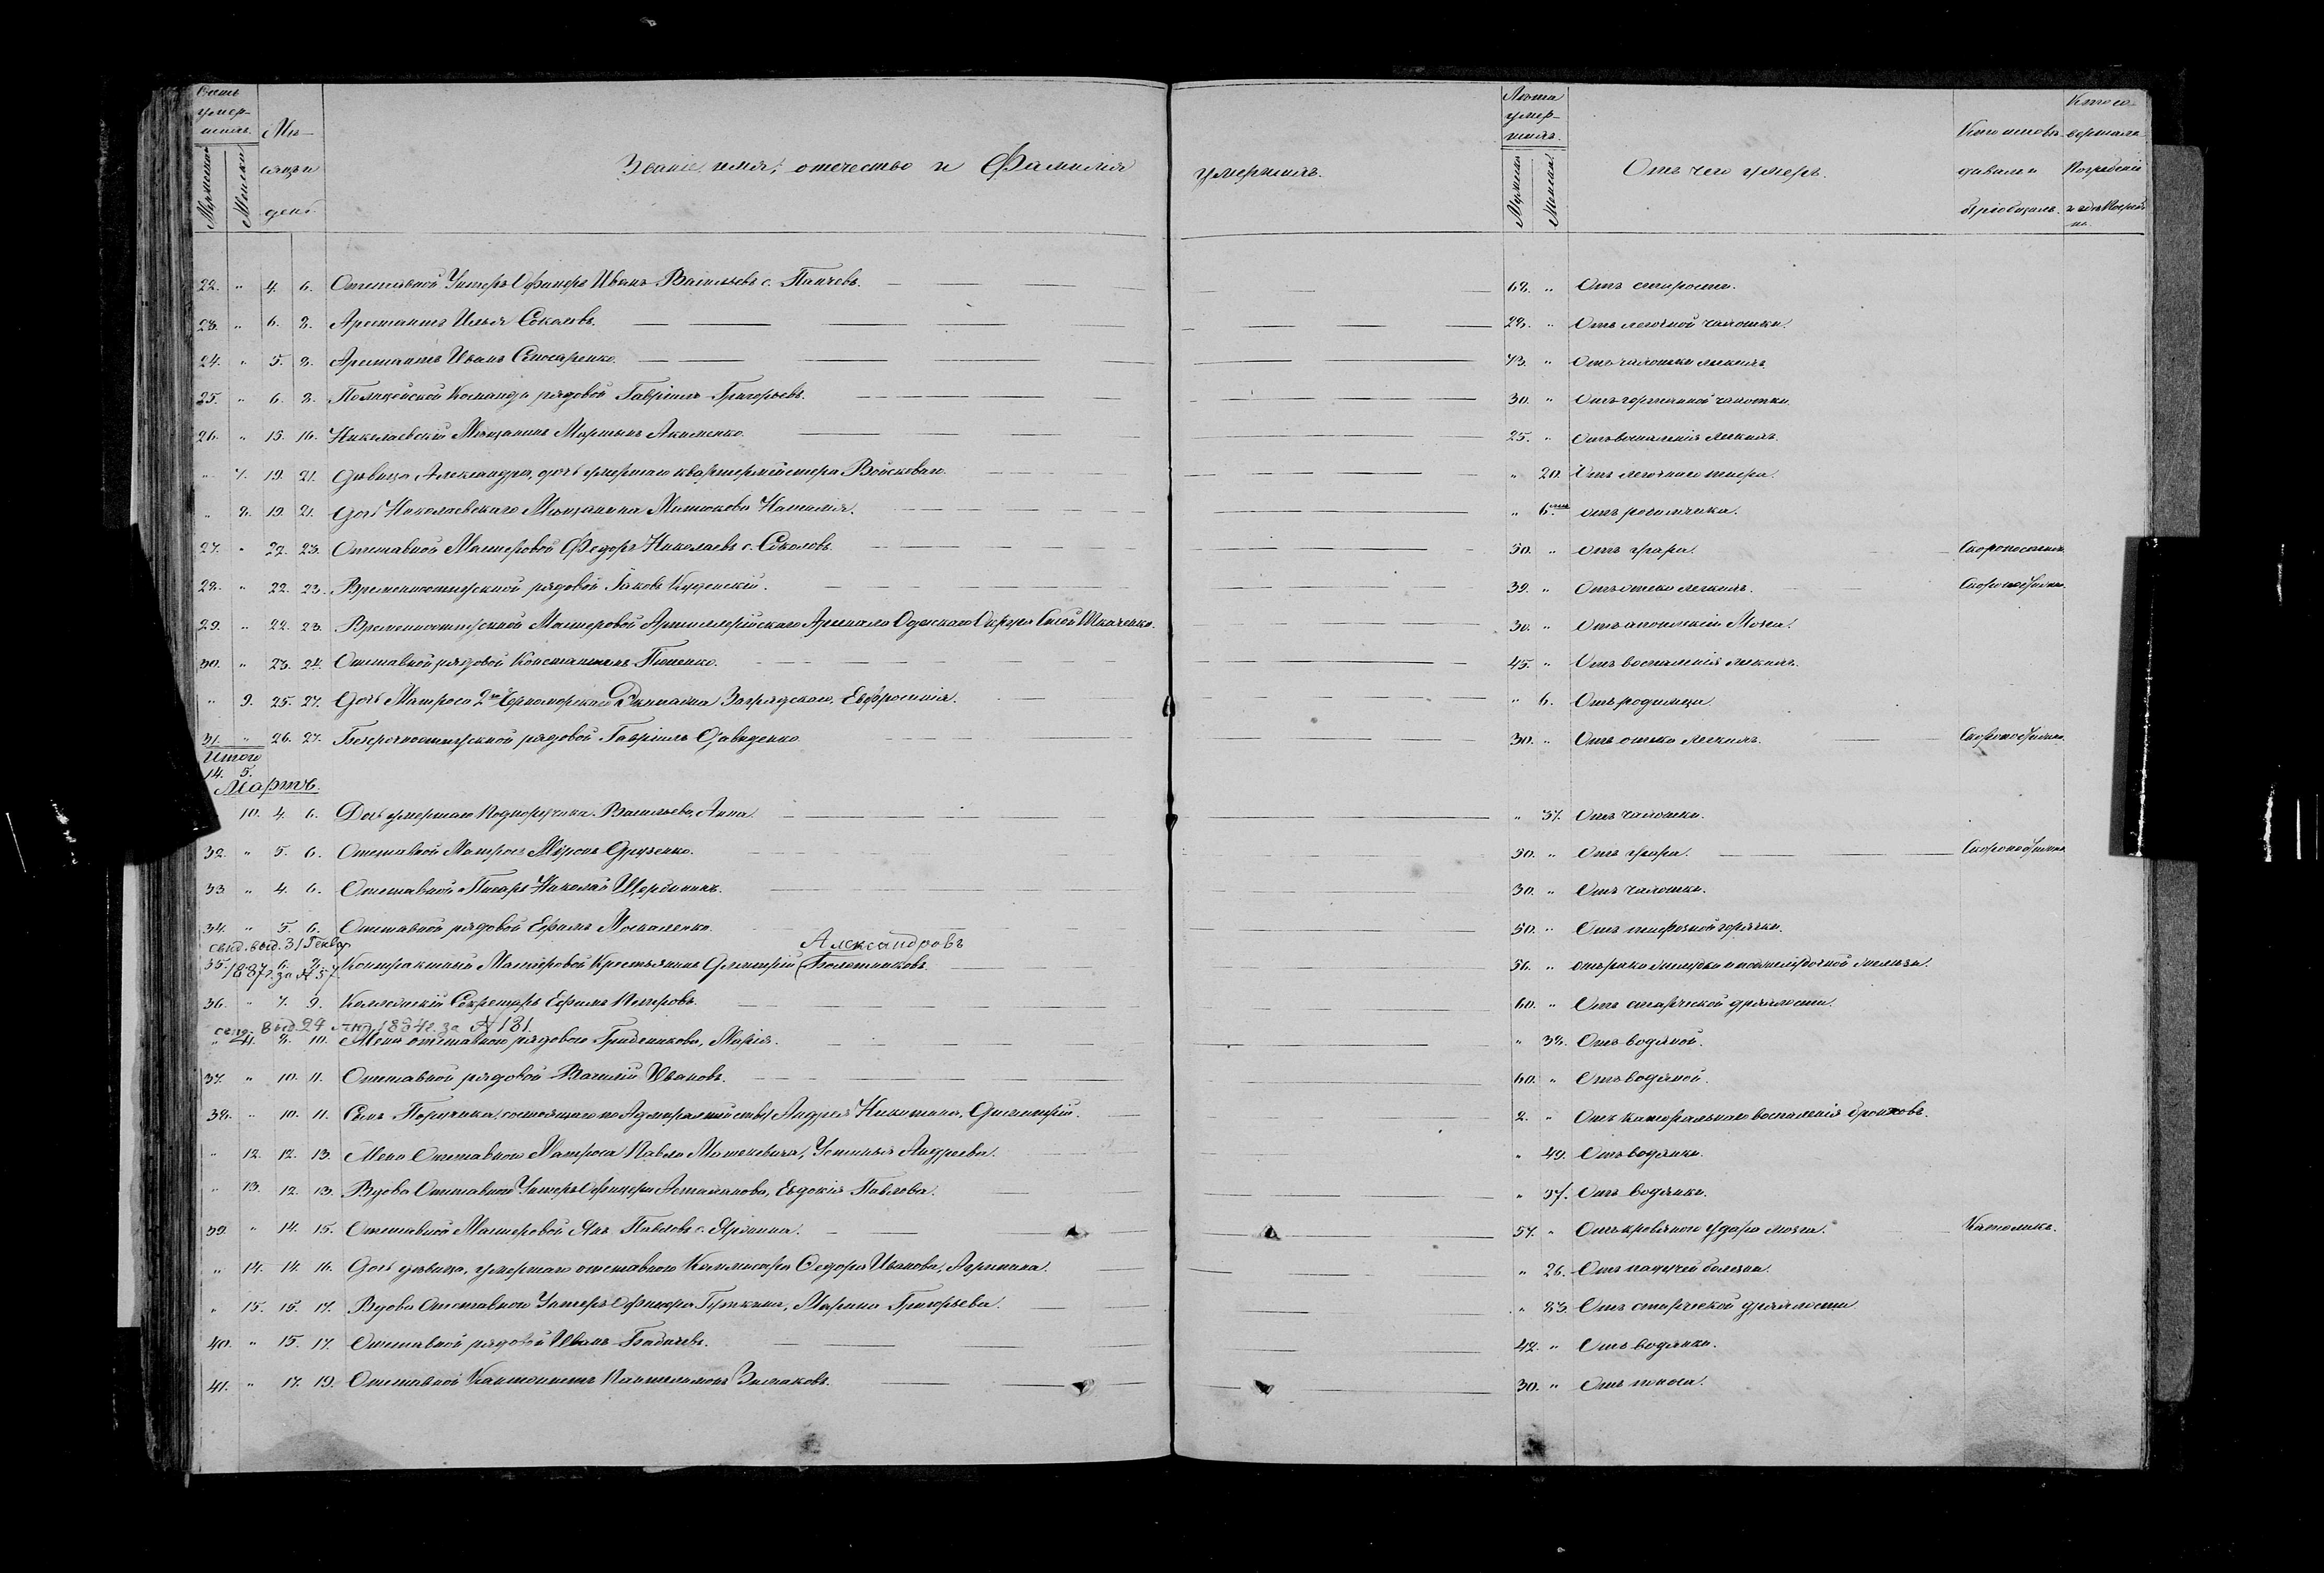 Счетъ умер- шихъ. Мѣ- сяцъ и день Званіе имя, отечество и Фамилія умершихъ. Лѣта умер- шихъ. Отъ чего умеръ. Кто исповѣ- дывалъ и пріобщалъ. Кто со- вершалъ Погребеніе и гдѣ Погреб-
Мужескій Женскій Мужески Женски
22. " 4. 6. Отставной Унтеръ Офицеръ Иванъ Васильевъ с. 68. " Отъ старости.
23. " 6. 8. Арестантъ Илья Соколовъ. 28. " Отъ легочной чахотки.
24. " 5. 8. Арестантъ Иванъ 43. " Отъ чахотки легкихъ
25. " 6. 8. Полицейской Команды рядовой Гавріилъ Григорьевъ. 30. " Отъ горловой чахотки.
26. " 15. 16. Николаевскій Мѣщанинъ Мартынъ Акименко. 25. " Отъ воспаленія легкихъ.
" 7. 19. 21. Дѣвица Александра, дочь умершаго квартермейстера Войсковаго. " 20. Отъ легочнаго тифа.
" 8. 19. 21. Дочь Николаевскаго Мѣщанина Матюкова Наталія. " 6. отъ родимчика.
27. " 22. 23. Отставной Мастеровой Федоръ Николаевъ с. Соколовъ. 50. " отъ удара.
28. " 22. 23. Временноотпускной рядовой Іаковъ 39. " Отъ отека легкихъ.
29. " 22. 23. Временноотпускной Мастеровой Артиллерійскаго Арсенала Одесскаго Округа Ткаченко. 30. " Отъ апоплексіи Мозга.
30. " 23. 24. Отставной рядовой Константинъ 45. " Отъ воспаленія легкихъ.
" 9. 25. 27. Дочь Матроса 2го Черноморскаго Экипажа Загрядскаго, Евфросинія. " 6. Отъ родимца.
31. " 26. 27. Безсрочноотпускной рядовой Гавріилъ Давиденко 30. " Отъ отека легкихъ.
Итого
14. 5.
Мартъ.
10. 4. 6. Дочь умершаго Подпоручика Васильева, Анна. " 37. Отъ чахотки.
32. " 5. 6. Отставной Матросъ Міронъ Друзенко. 50. " Отъ удара.
33 " 4. 6. Отставной Писарь Николай Щербининъ. 30. " Отъ чахотки.
34. " 5. 6. Отставной рядовой Ефимъ Москаленко. 50. " Отъ тифозной горячки.
свид. выд. 31 Генвар Александровъ
35. 1887 г. за № 57 6. 8. Контрактный Мастеровой Крестьянинъ Дмитрій Болотниковъ. 56. " отъ рака желудка и поджелудочной железы.
36. " 7. 9. Коллежскій Секретарь Ефимъ Петровъ. 60. " Отъ старческой дряхлости.
свид. выд. 24 1884 г. за № 181.
" 11. 8. 10. Жена отставнаго рядоваго Гребенникова, Марія. " 38. Отъ водяной.
37. " 10. 11. Отставной рядовой Василій Ивановъ. 60. " Отъ водяной.
38. " 10. 11. Сынъ Поручика, состоящаго по Адмиралтейству Андрея Никитина, Димитрій. 2. " Отъ катаральнаго воспаленія бронховъ.
" 12. 12. 13. Жена Отставнаго Матроса Павла Маткевича, Устинья Андреева. " 49. Отъ водянки.
" 13. 12. 13. Вдова Отставнаго Унтеръ Офицера Асташкова, Евдокія Павлова. " 37. Отъ водянки.
39. " 14. 15. Отставной Мастеровой Янъ Павловъ с. 57. " Отъ кровянаго удара мозга. Католикъ.
" 14. 14. 16. Дочь дѣвица, умершаго отставнаго Коммисара Федора Иванова, Агрипина. " 26. Отъ падучей болезни.
" 15. 15. 17. Вдова Отставнаго Унтеръ Офицера Марина Григорьева. " 83. Отъ старческой дряхлости
40. " 15. 17. Отставной рядовой Иванъ Бабичевъ. 42. " Отъ водянки.
41. " 17. 19. Отставной Кантонистъ Пантелимонъ 30. " Отъ поноса.